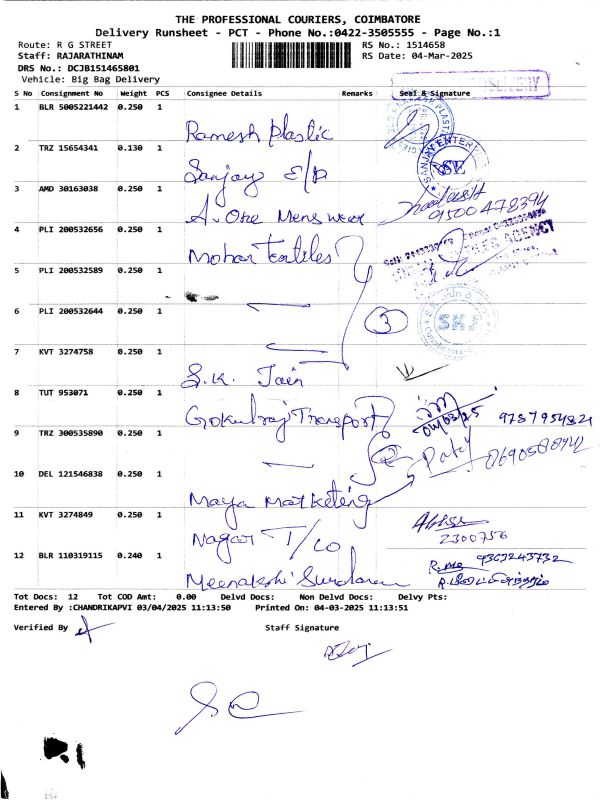 THE PROFESSIONAL COURIERS, COIMBATORE
Delivery Runsheet - PCT - Phone No.:0422-3505555 - Page No.:1
Route: R G STREET RS No.: 1514658
Staff: RAJARATHINAM RS Date: 04-Mar-2025
DRS No.: DCJB151465801
Vehicle: Big Bag Delivery
S No Consignment No Weight PCS Consignee Details Remarks Seal & Signature
1 BLR 5005221442 0.250 1 Ramesh Plastic
2 TRZ 15654341 0.130 1 Sanjay E/P
SANJAY ENTER
SE
3 AMD 30163038 0.250 1 A. One Mens wear
9500478394
4 PLI 200532656 0.250 1 Mohan Textiles
AGENCY
5 PLI 200532589 0.250 1
6 PLI 200532644 0.250 1 3
7 KVT 3274758 0.250 1 S.K. Jain
8 TUT 953071 0.250 1 Gokulraj Transport
04/03/25 9787954824
9 TRZ 300535890 0.250 1 2
10 DEL 121546838 0.250 1 Maya Marketing
11 KVT 3274849 0.250 1 Nagar T/co
2300756
12 BLR 110319115 0.240 1 Meenakshi Sundaram
9363243732
Tot Docs: 12 Tot COD Amt: 0.00 Delvd Docs: Non Delvd Docs: Delvy Pts:
Entered By :CHANDRIKAPVI 03/04/2025 11:13:50 Printed On: 04-03-2025 11:13:51
Verified By Staff Signature